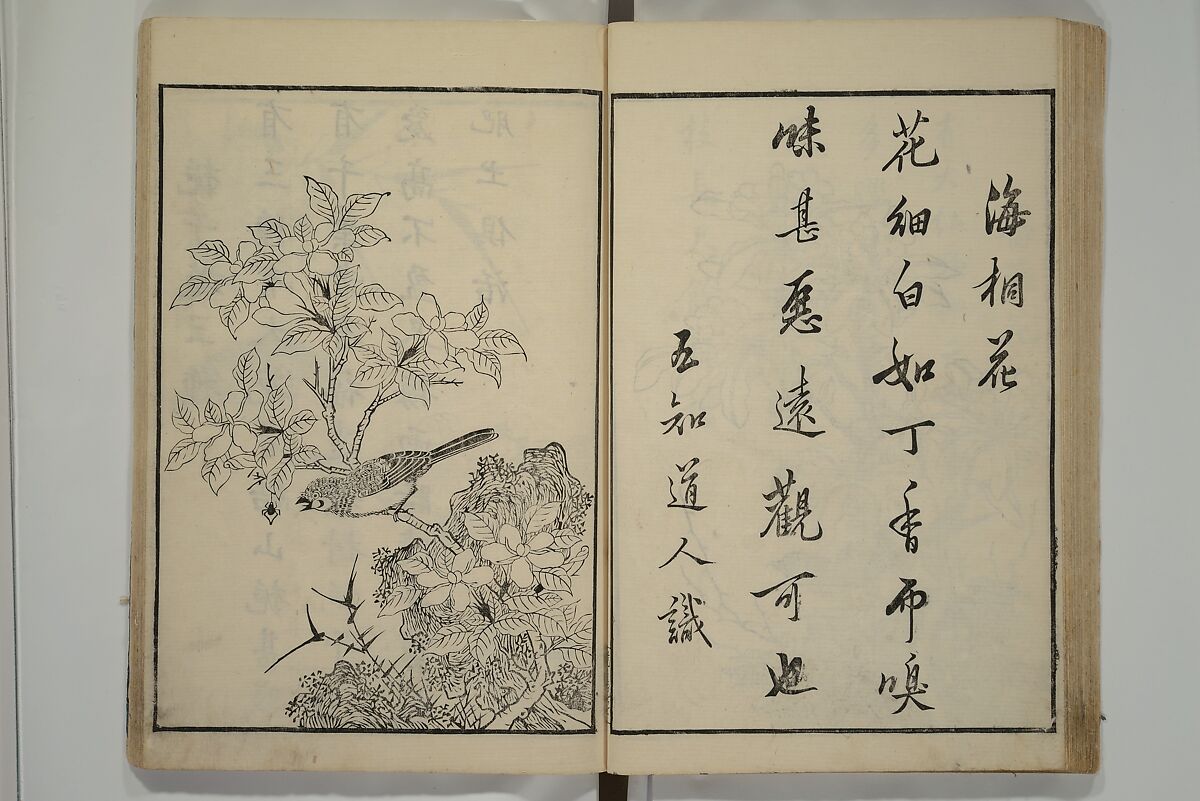 海桐花
花細白如丁香而嗅
味甚惡遠觀可也
五知道人識